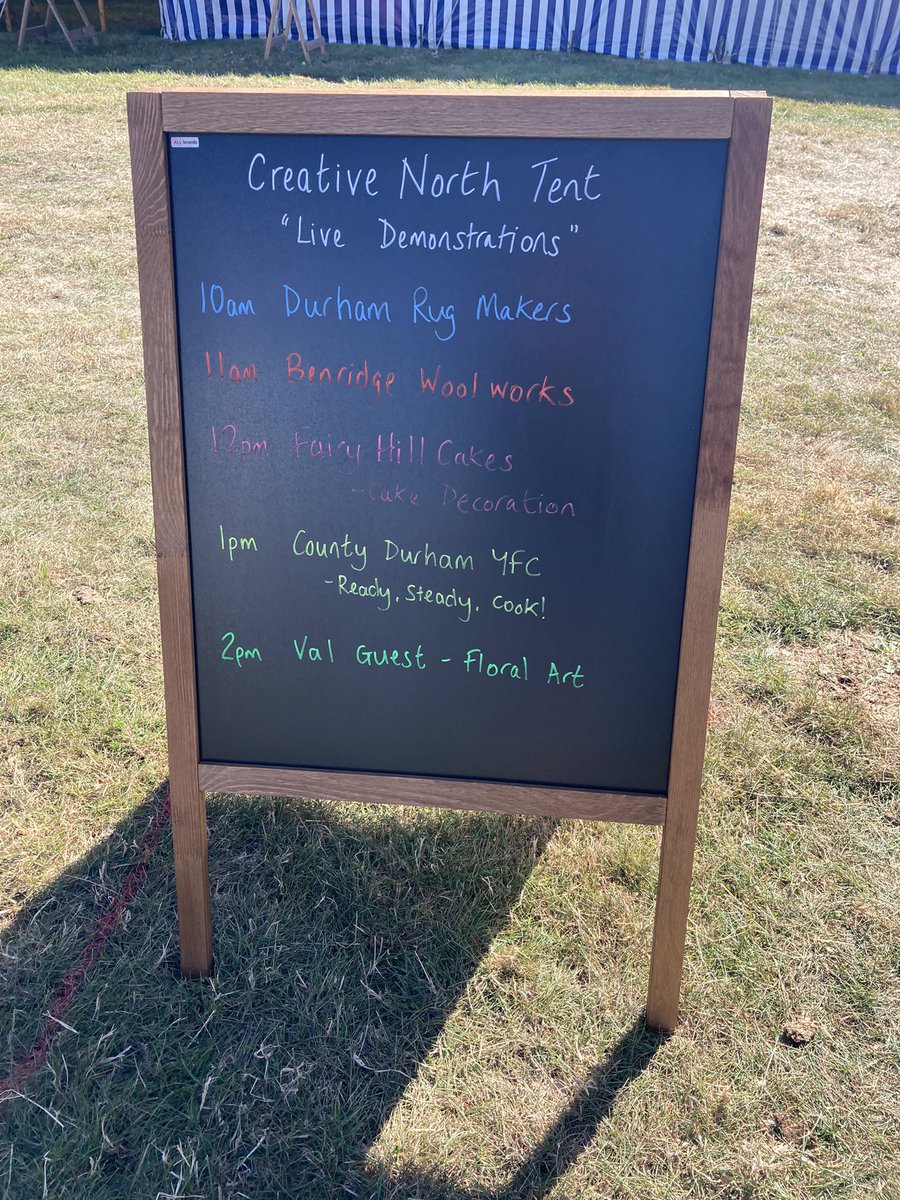 ALLboards
Creative North Tent
"Live Demonstrations"
10am Durham Rug Makers
11am Benridge Wool works
12pm Fairy Hill Cakes
- Cake Decoration
1pm County Durham YFC
- Ready, Steady, Cook!
2pm Val Guest - Floral Art